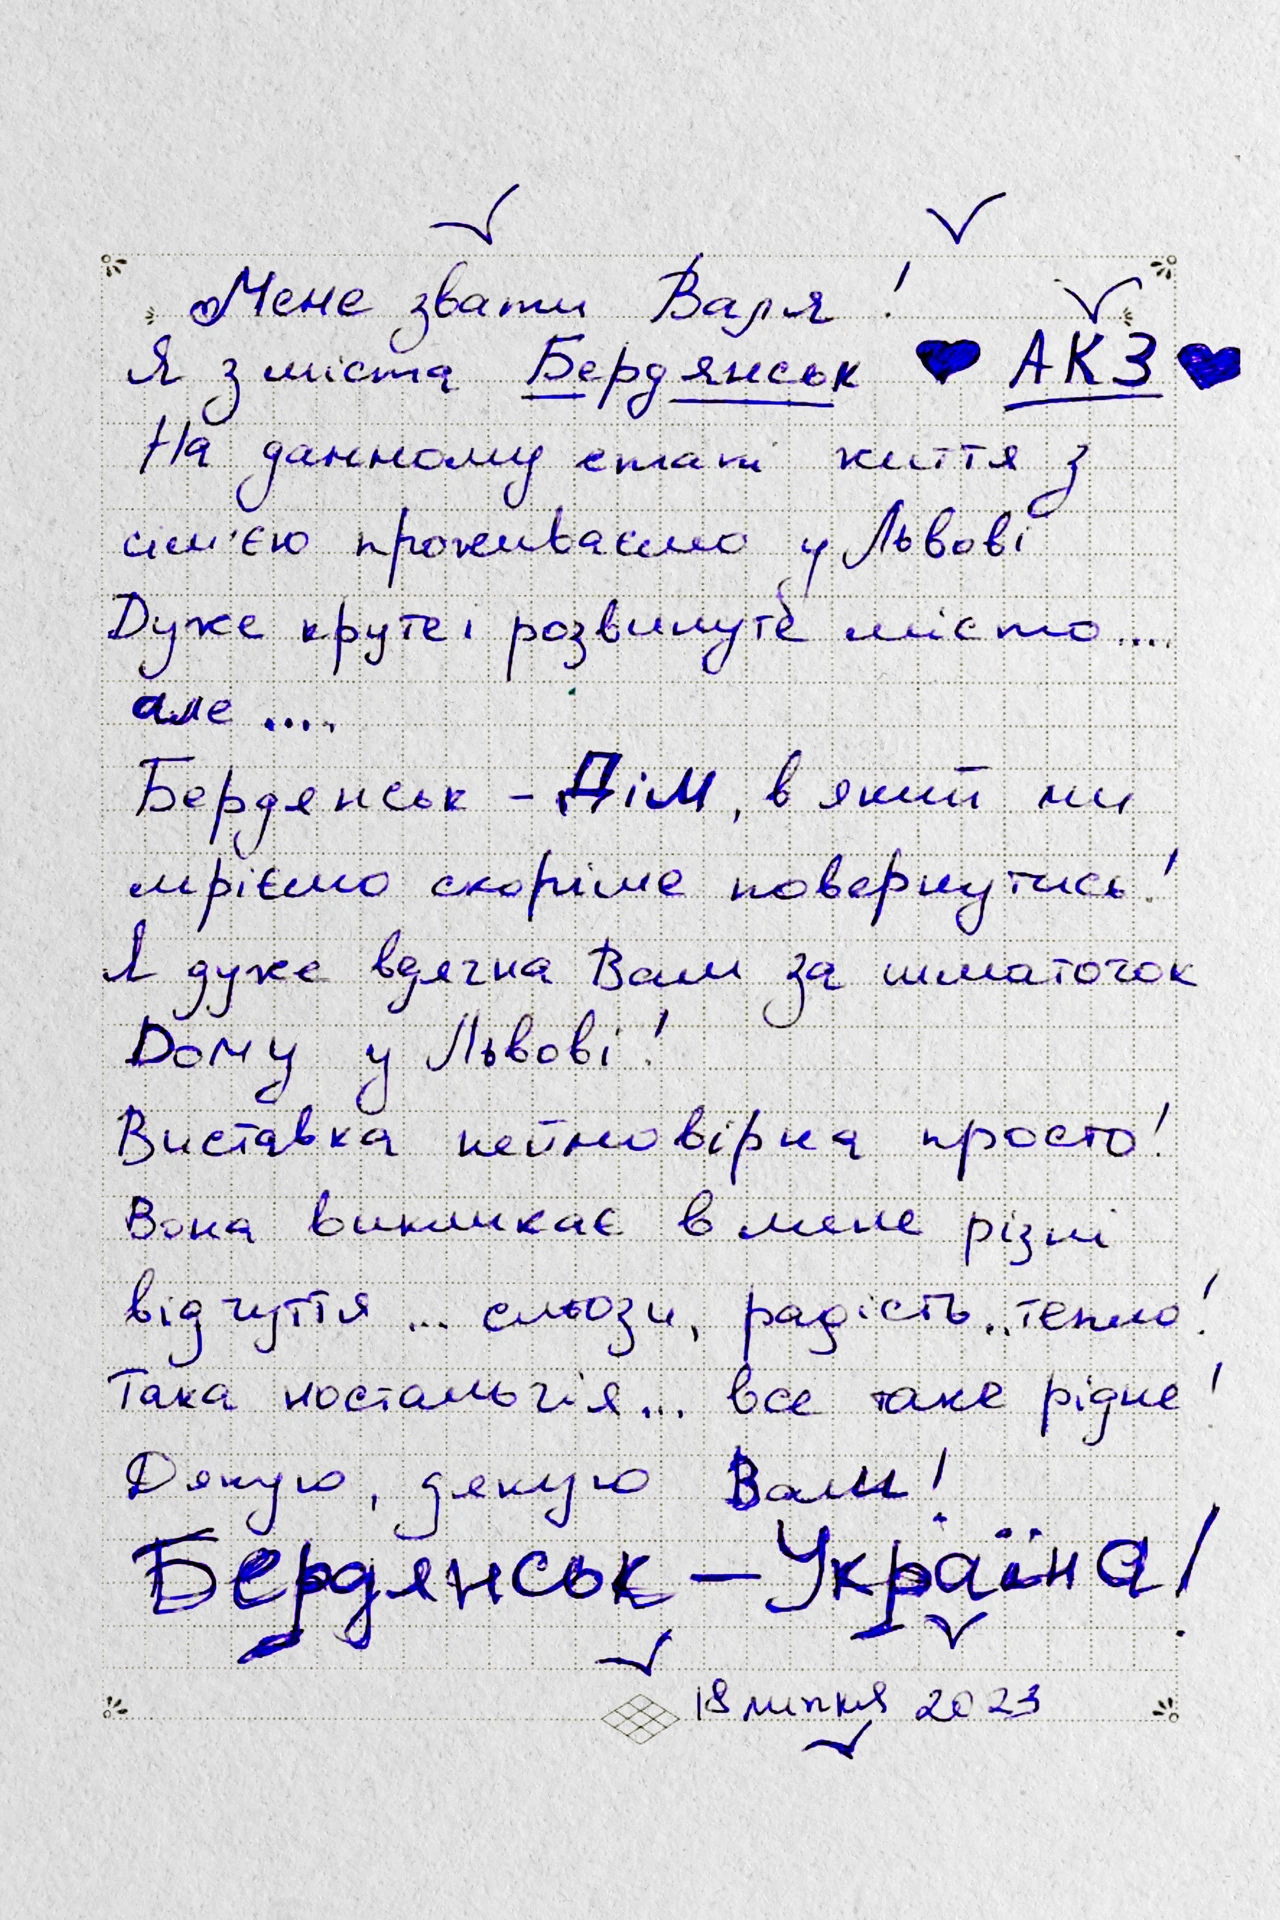 Мене звати Варя!
Я з міста Бердянськ АКЗ
На данному етапі життя з
сім'єю проживаємо у Львові
Дуже круте і розвинуте місто....
але ....
Бердянськ - Дім, в який ми
мріємо скоріше повернутись!
Я дуже вдячна Вам за шматочок
Дому у Львові!
Виставка неймовірна просто!
Вона викликає в мене різні
відчуття ... сльози, радість.. тепло!
Така ностальгія... все таке рідне!
Дякую, дякую Вам!
Бердянськ - Україна!
18 липня 2023